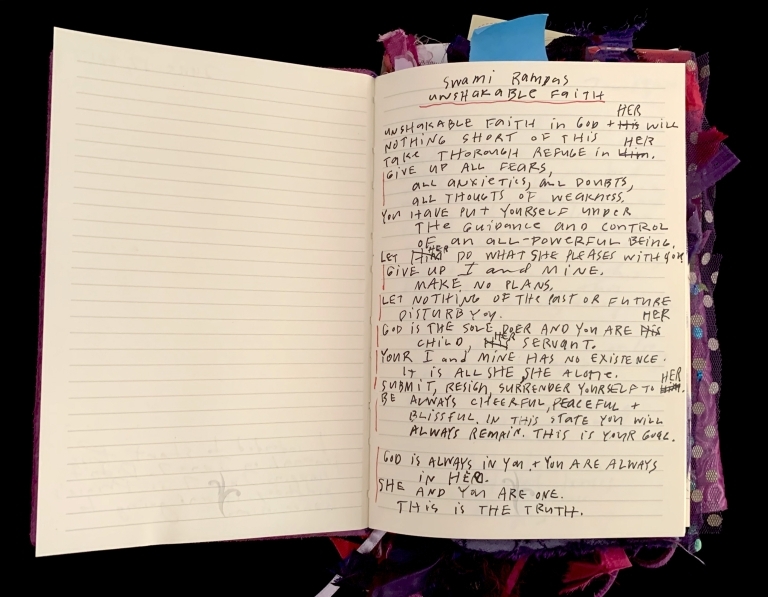 Swami Rampas
UNSHAKABLE FAITH
HER
UNSHAKABLE FAITH in GOD + His WILL
NOTHING SHORT OF THIS HER
TAKE THOROUGH REFUGE in Him.
GIVE UP ALL FEARS,
ALL ANXIETIES, ALL DOUBTS,
ALL THOUGTS OF WEAKNESS.
YOU HAVE PUT YOURSELF UNDER
THE GUIDANCE AND CONTROL
OF an ALL-POWERFUL BEING.
LET Him HER DO WHAT SHE PLEASES WITH YOU
GIVE UP I and MINE.
MAKE NO PLANS.
LET NOTHING OF THE PAST OR FUTURE
DISTURB YOU. HER
GOD IS THE SOLE DOER AND YOU ARE His
CHILD, His HER SERVANT.
YOUR I and MINE HAS NO EXISTENCE.
IT IS ALL SHE, SHE ALONE. HER
SUBMIT, RESIGN, SURRENDER YOURSELF TO Him.
BE ALWAYS CHEERFUL, PEACEFUL +
BLISSFUL. IN THIS STATE YOU WILL
ALWAYS REMAIN. THIS IS YOUR GOAL.
GOD IS ALWAYS in YOU + YOU ARE ALWAYS
in HER.
SHE AND YOU ARE ONE.
THIS IS THE TRUTH.